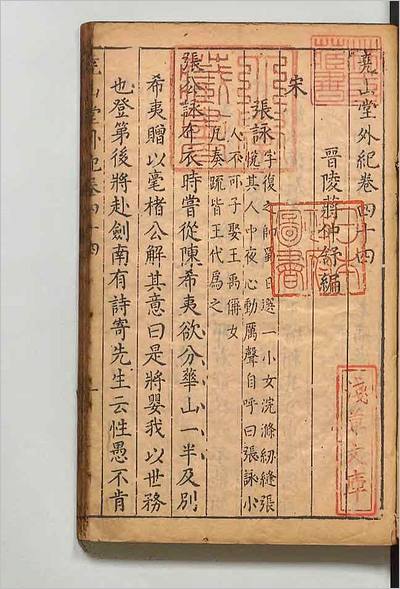 堯山堂外紀卷四十四
晉陵蔣仲舒編
宋
張詠
字復之帥蜀日選一小女浣滌紉縫張
悦其人中夜心動厲聲自呼曰張詠小
人不可不可子娶王禹偁女
凡奏疏皆王代爲之
張公詠布衣時嘗從陳希夷欲分華山一半及別
希夷贈以毫楮公解其意曰是將嬰我以世務
也登第後將赴劍南有詩寄先生云性愚不肯
堯山堂外紀卷四十四
一
淺草文庫
日本
圖書